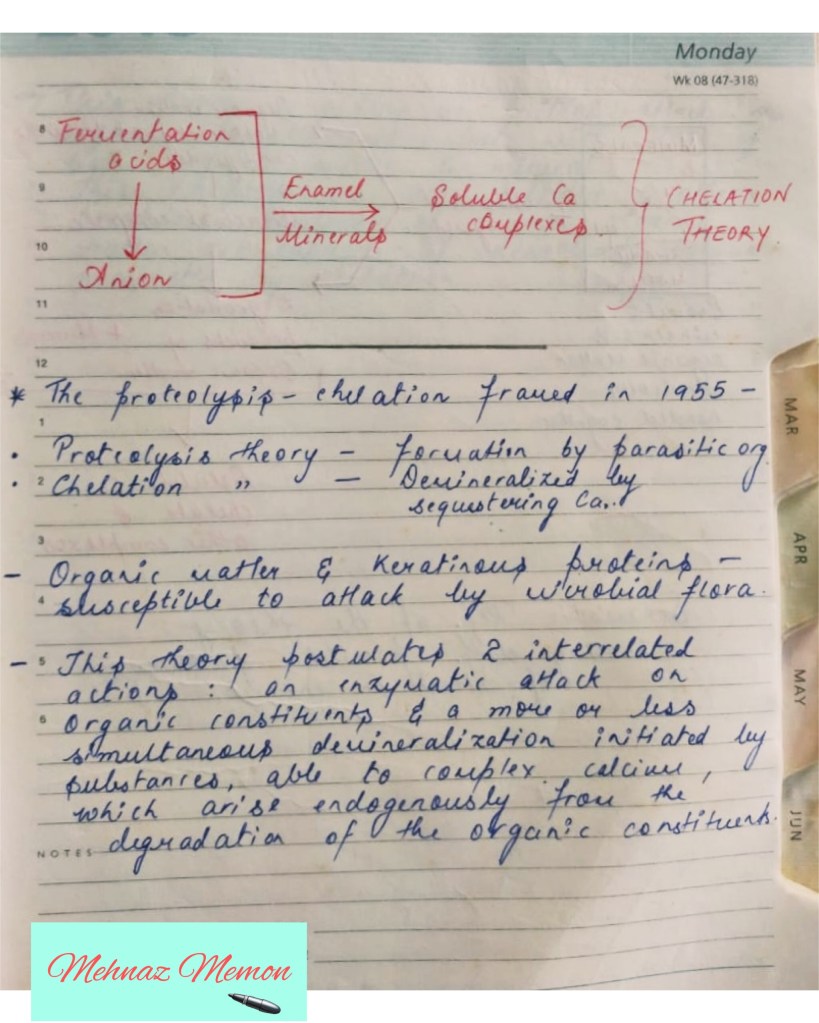 Monday
Wk 08 (47-318)
8
Fermentation
acids
9
Enamel
Minerals
Soluble Ca
complexes.
CHELATION
THEORY.
10
Anion
11
12
* The proteolysis - chelation framed in 1955 -
1
• Proteolysis theory - formation by parasitic org.
• 2 Chelation " - Demineralized by
sequstering Ca..
3
- Organic matter & Keratinous proteins -
4 susceptible to attack by microbial flora.
- 5 This theory postulates 2 interrelated
actions : an enzymatic attack on
6 Organic constituents & a more or less
simultaneous demineralization initiated by
substances, able to complex calcium,
which arise endogenously from the
NOTES degradation of the organic constituents.
MAR
APR
MAY
JUN
Mehnaz Memon